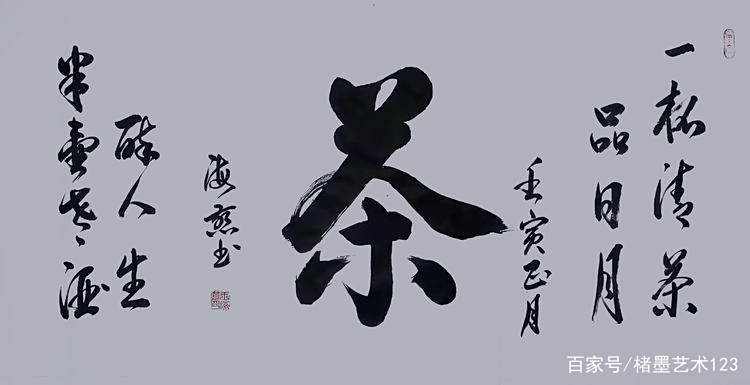 一杯清茶
品日月
壬寅正月
茶
海燕书
半壶老酒
醉人生
百家号/楮墨艺术123